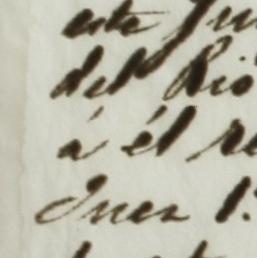 este Ju
del Rio
á él re
Juez 1.